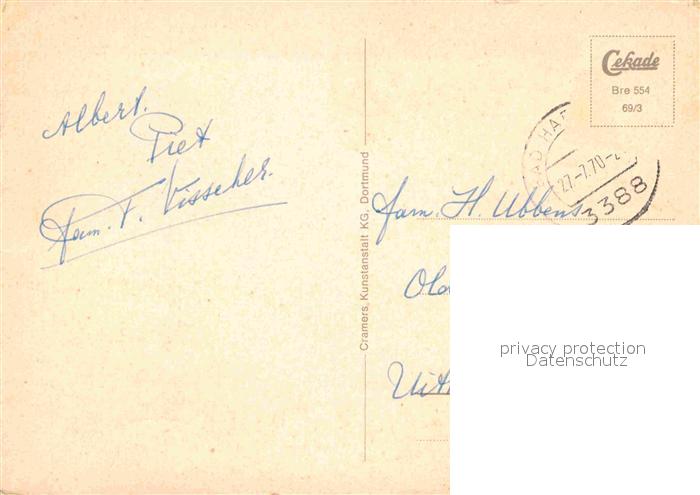 Albert.
Piet
Fam. F. Visscher.
Cramers Kunstanstalt KG, Dortmund
Cekade
Bre 554
69/3
27-7.70
3388
fam. H. Ubbens
privacy protection
Datenschutz